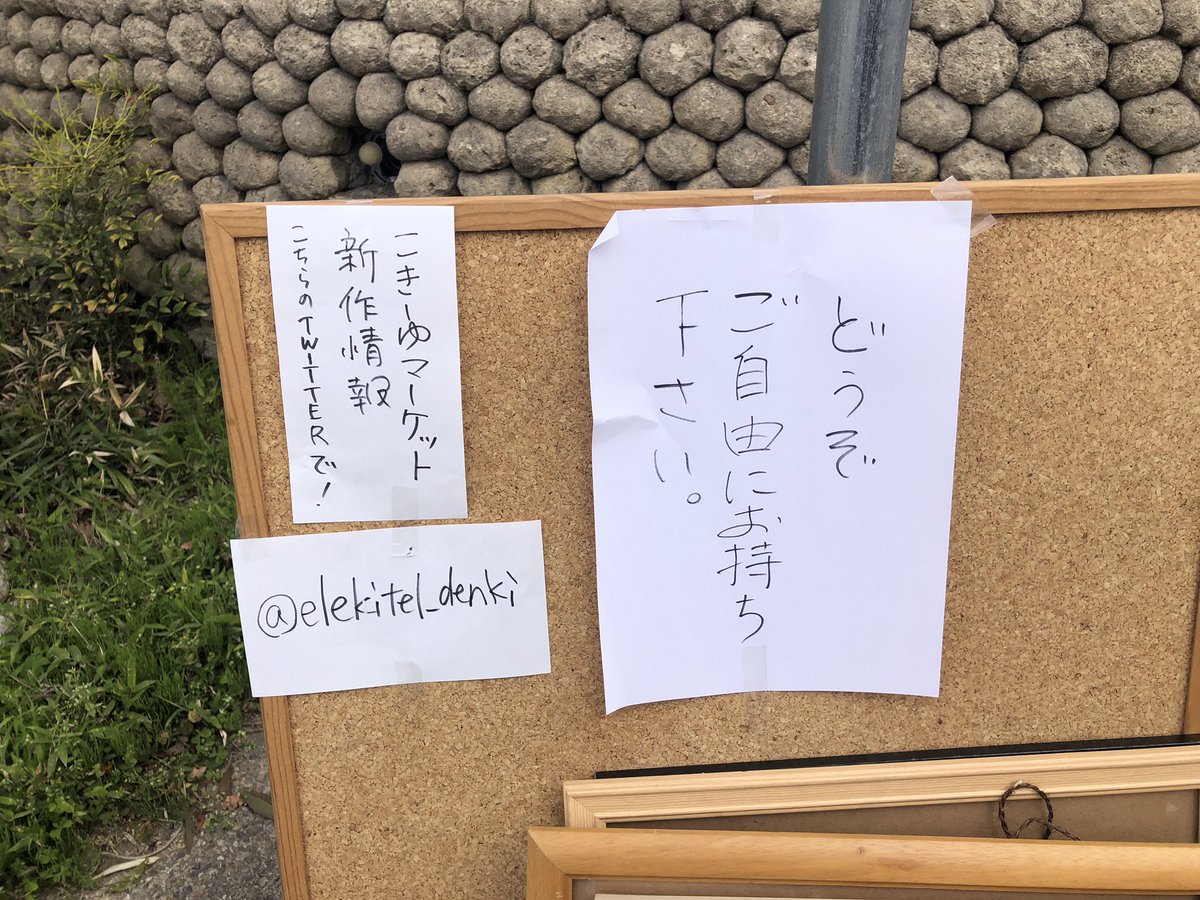 どうぞ
ご自由にお持ち
下さい。
こきーゆマーケット
新作情報
こちらのTWITTERで!
@elekitel_denki